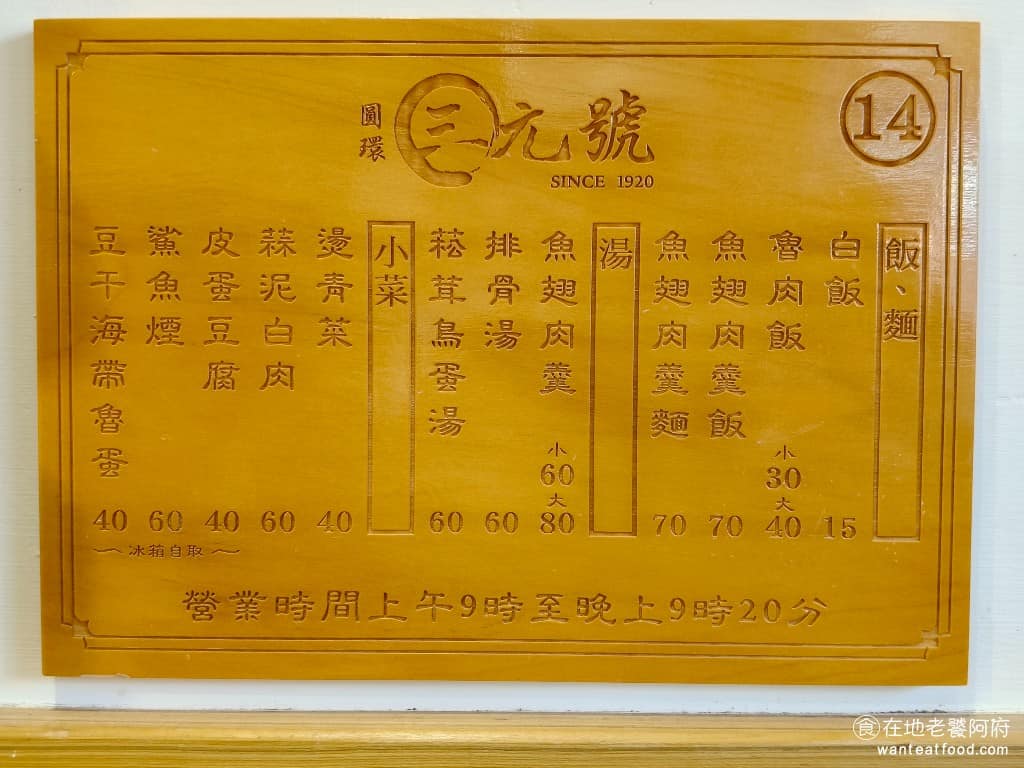 圓環 三元號
SINCE 1920
14
飯、麵
白飯 15
魯肉飯 小30 大40
魚翅肉羹飯 70
魚翅肉羹麵 70
湯
魚翅肉羹 小60 大80
排骨湯 60
菘茸鳥蛋湯 60
小菜
燙青菜 40
蒜泥白肉 60
皮蛋豆腐 40
鯊魚煙 60
豆干海帶魯蛋 40
冰箱自取
營業時間上午9時至晚上9時20分
食在地老饕阿府
wanteatfood.com